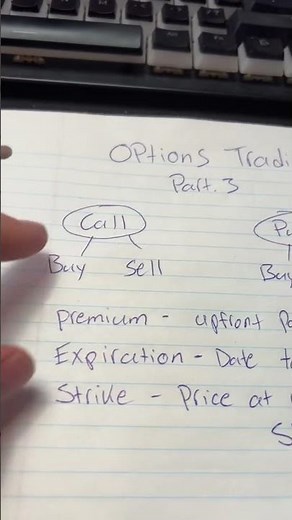 Options Tradi
Part. 3
Call Pu
Buy Sell Buy
premium - upfront Pa
Expiration - Date to
Strike - Price at
S